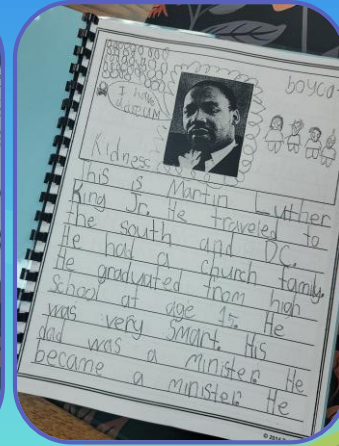 boyca
I have
a dream
Kidness
This is Martin Luther
King Jr. He traveled to
the south and DC.
He had a church family.
He graduated from high
school at age 15. He
was very smart. His
dad was a minister. He
became a minister. He